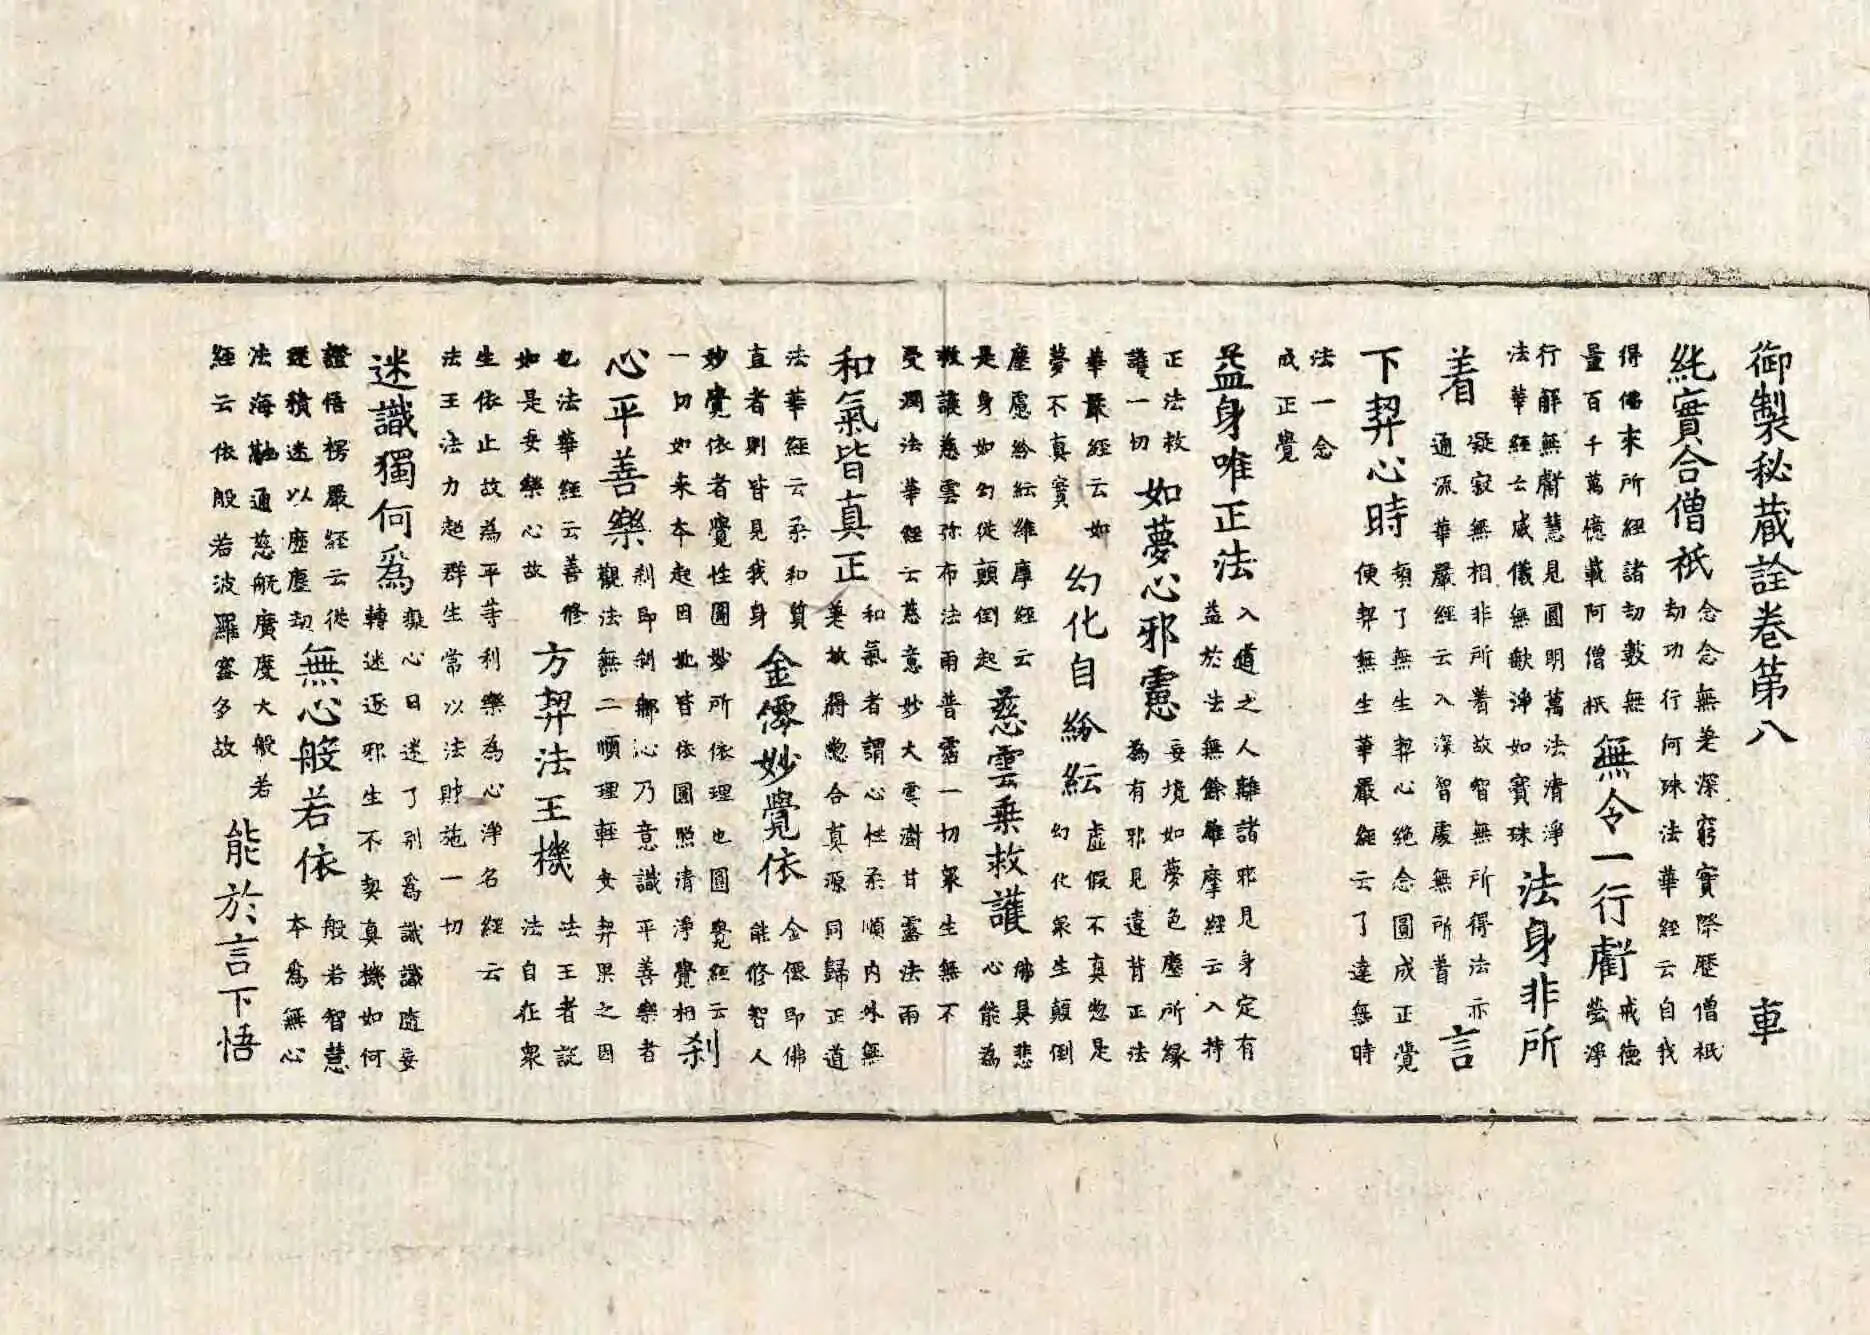 御製秘藏詮卷第八 車
純實合僧祇
念念無差深窮實際歷僧祇
劫功行何殊法華經云自我
得佛來所經諸劫數無
量百千萬億載阿僧祇
無令一行虧
戒德
瑩淨
行解無虧慧見圓明萬法清淨
法華經云威儀無缺淨如寶珠
法身非所
着
凝寂無相非所着故智無所得法亦
通流華嚴經云入深智處無所着
言
下契心時
頓了無生契心絶念圓成正覺
便契無生華嚴經云了達無時
法一念
成正覺
益身唯正法
入道之人離諸邪見身定有
益於法無餘維摩經云入持
正法救
護一切
如夢心邪慮
妄境如夢色塵所緣
為有邪見違背正法
華嚴經云如
夢不真實
幻化自紛紜
虛假不真惣是
幻化衆生顛倒
塵慮紛紜維摩經云
是身如幻從顛倒起
慈雲乘救護
佛具悲
心能為
救護慈雲弥布法雨普霑一切衆生無不
受潤法華經云慈意妙大雲澍甘露法雨
和氣皆真正
和氣者謂心性柔順內外無
差故得惣合真源同歸正道
法華經云柔和質
直者則皆見我身
金僊妙覺依
金僊即佛
能修智人
妙覺依者覺性圓妙所依理也圓覺經云
一切如來本起因地皆依圓照清淨覺相
刹
心平善樂
刹即刹鄉沁乃意識平善樂者
觀法無二順理輕安契果之因
也法華經云善修
如是安樂心故
方契法王機
法王者說
法自在衆
生依止故為平等利樂為心淨名經云
法王法力超群生常以法財施一切
迷識獨何爲
凝心日迷了別爲識識隨妄
轉迷逐邪生不契真機如何
證悟楞嚴經云從
迷積迷以歷塵劫
無心般若依
般若智慧
本爲無心
法海融通慈航廣度大般若
經云依般若波羅蜜多故
能於言下悟